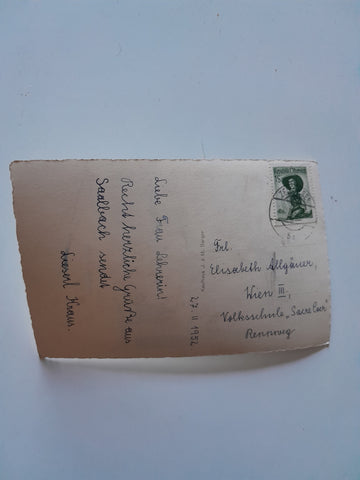 Liebe Frau Lehrerin!
Recht herzliche Grüße aus
Saalbach sendet
Lieserl Kraus.
27. II 1952
Frl.
Elisabeth Allgäuer,
Wien III,
Volksschule „Sacre Coeur"
Rennweg